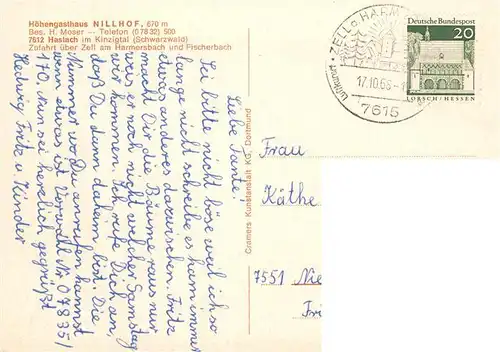 Höhengasthaus NILLHOF, 670 m
Bes. H. Moser — Telefon (07832) 500
7612 Haslach im Kinzigtal (Schwarzwald)
Zufahrt über Zell am Harmersbach und Fischerbach
Liebe Tante!
Sei bitte nicht böse weil ich so
lange nicht schreibe es kam immer
etwas anderes dazwischen. Fritz
macht Dir die Bäume raus nur
weis er noch nicht welcher Samstag
wir kommen. Ich rufe Dich an,
daß Du dann daheim bist. Die
Nummer wo Du anrufen kannst
wenn etwas ist Vorwahl Nr 07835/
170. Nun sei herzlich gegrüßt
Hedwig Fritz u. Kinder
Cramers Kunstanstalt KG, Dortmund
ZELL a. HARM
17.10.68-1
Luftkurort
7615
Deutsche Bundespost
20
LORSCH/HESSEN
Frau
Käthe
7551 Nie
Fri